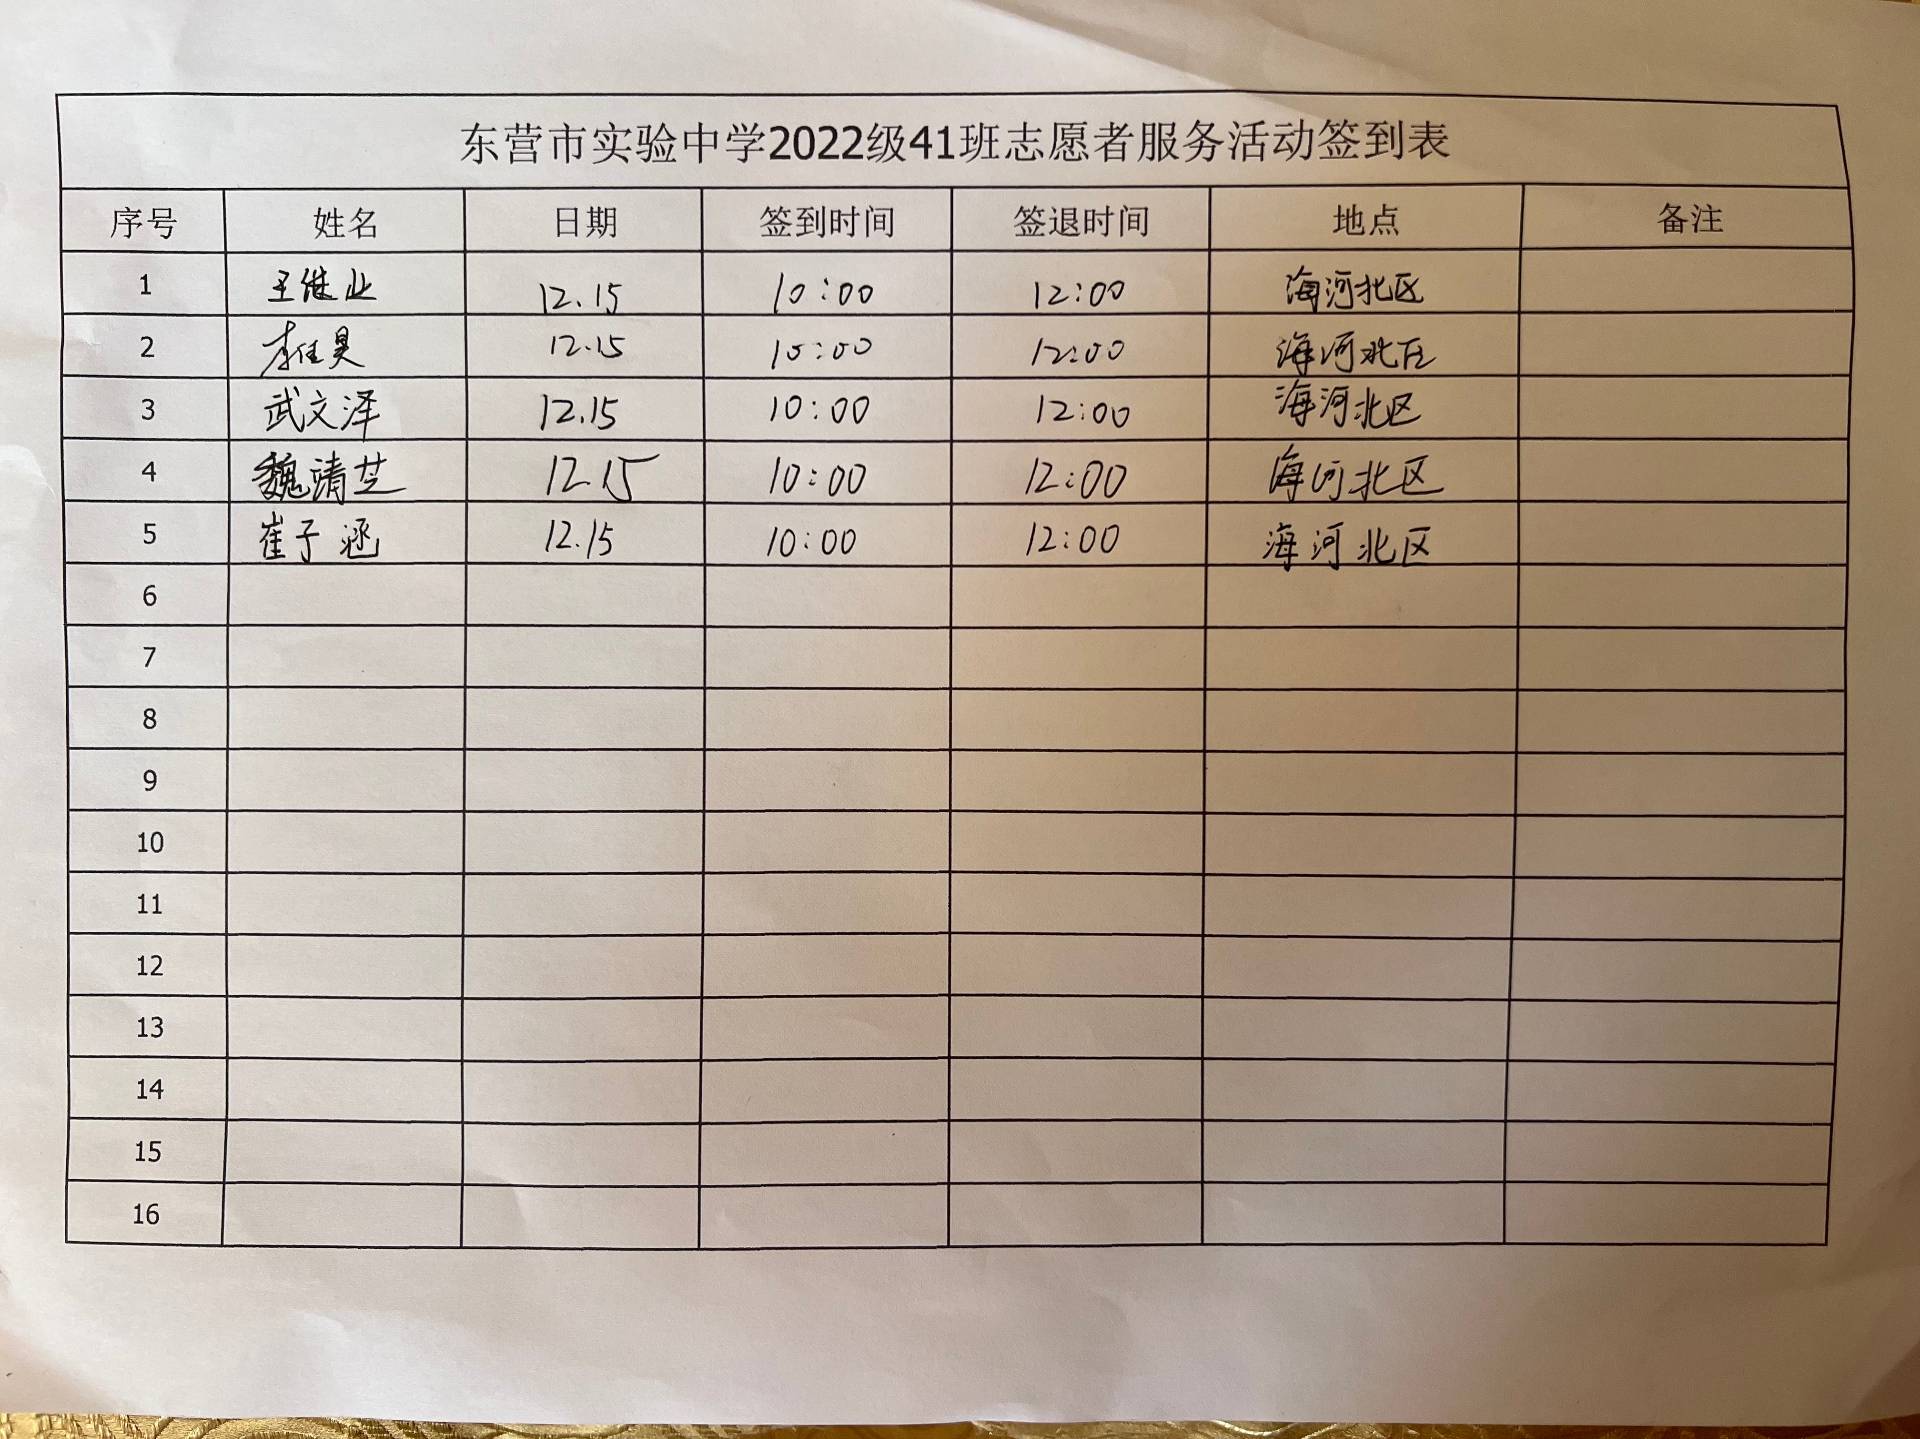 东营市实验中学2022级41班志愿者服务活动签到表
序号 姓名 日期 签到时间 签退时间 地点 备注
1 王继业 12.15 10:00 12:00 海河北区
2 李佳昊 12.15 10:00 12:00 海河北区
3 武文泽 12.15 10:00 12:00 海河北区
4 魏清芝 12.15 10:00 12:00 海河北区
5 崔子涵 12.15 10:00 12:00 海河北区
6
7
8
9
10
11
12
13
14
15
16